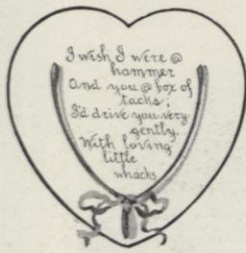 I wish I were @
hammer
And you @ box of
tacks;
I'd drive you very
gently.
With loving
little
whacks